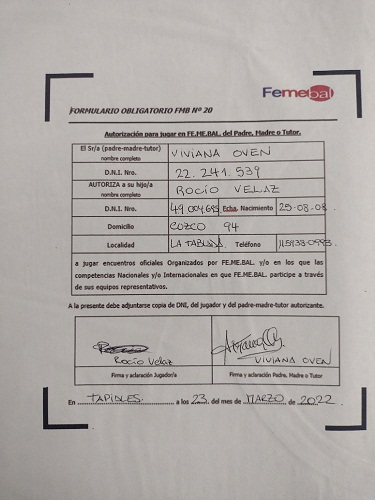 Femebal
FORMULARIO OBLIGATORIO FMB Nº 20
Autorización para jugar en FE.ME.BAL. del Padre, Madre o Tutor.
El Sr/a (padre-madre-tutor) VIVIANA OVEN
nombre completo
D.N.I. Nro. 22.241.539
AUTORIZA a su hijo/a ROCÍO VELAZ
nombre completo
D.N.I. Nro. 49.004.695 Fcha. Nacimiento 25-08-08.
Domicilio COZCO 94
Localidad LA TABLADA. Teléfono
a jugar encuentros oficiales Organizados por FE.ME.BAL. y/o en los que las
competencias Nacionales y/o Internacionales en que FE.ME.BAL. participe a través
de sus equipos representativos.
A la presente debe adjuntarse copia de DNI, del jugador y del padre-madre-tutor autorizante.
Rocío Velaz VIVIANA OVEN
Firma y aclaración Jugador/a Firma y aclaración Padre, Madre o Tutor
En TAPIALES a los 23 del mes de MARZO de 2022.